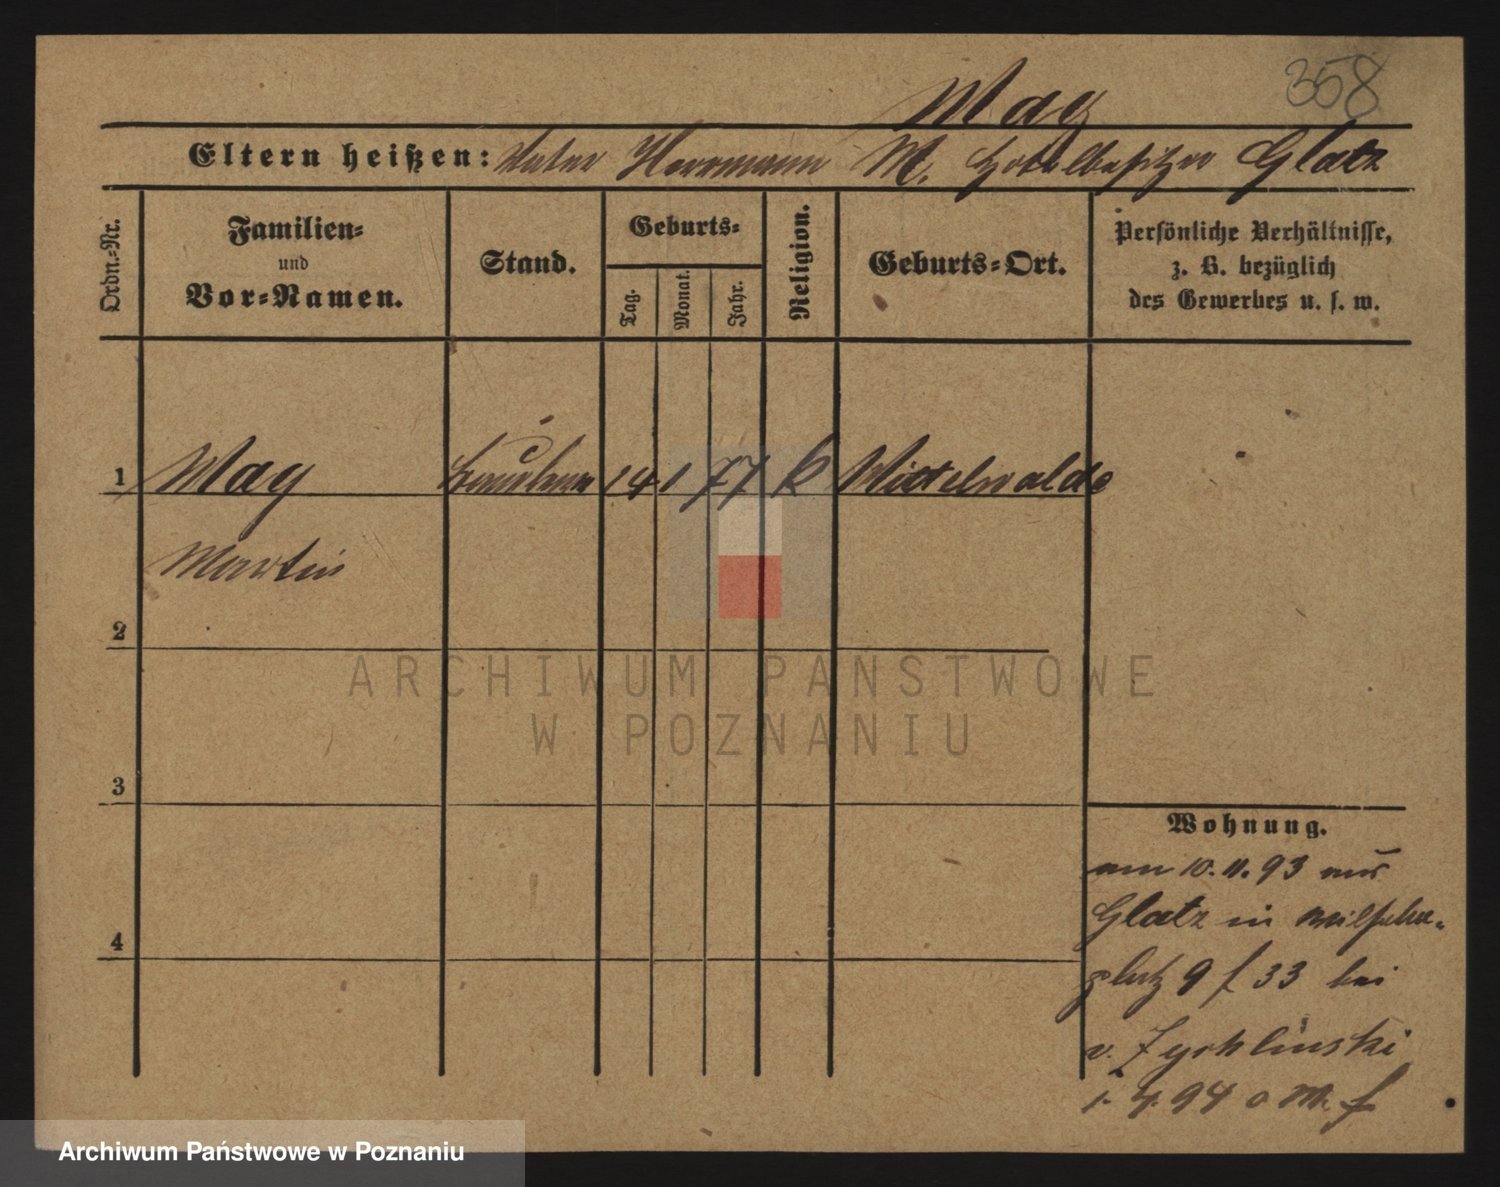 358
May
Eltern heißen: Vater Herrmann M. Hotelbesitzer Glatz
Ordn.-Nr.
Familien-
und
Vor-Namen.
Stand.
Geburts-
Tag.
Monat.
Jahr.
Religion.
Geburts-Ort.
Persönliche Verhältnisse,
z. B. bezüglich
des Gewerbes u. s. w.
1 May 14 1 77 k Mittelwalde
Martin
2
3
4
Wohnung.
am 10. 11. 93 aus
Glatz in Wilhelm-
platz 9 f 33 bei
v. Zychlinski
1. 4. 94 o M. f
ARCHIWUM PAŃSTWOWE
W POZNANIU
Archiwum Państwowe w Poznaniu